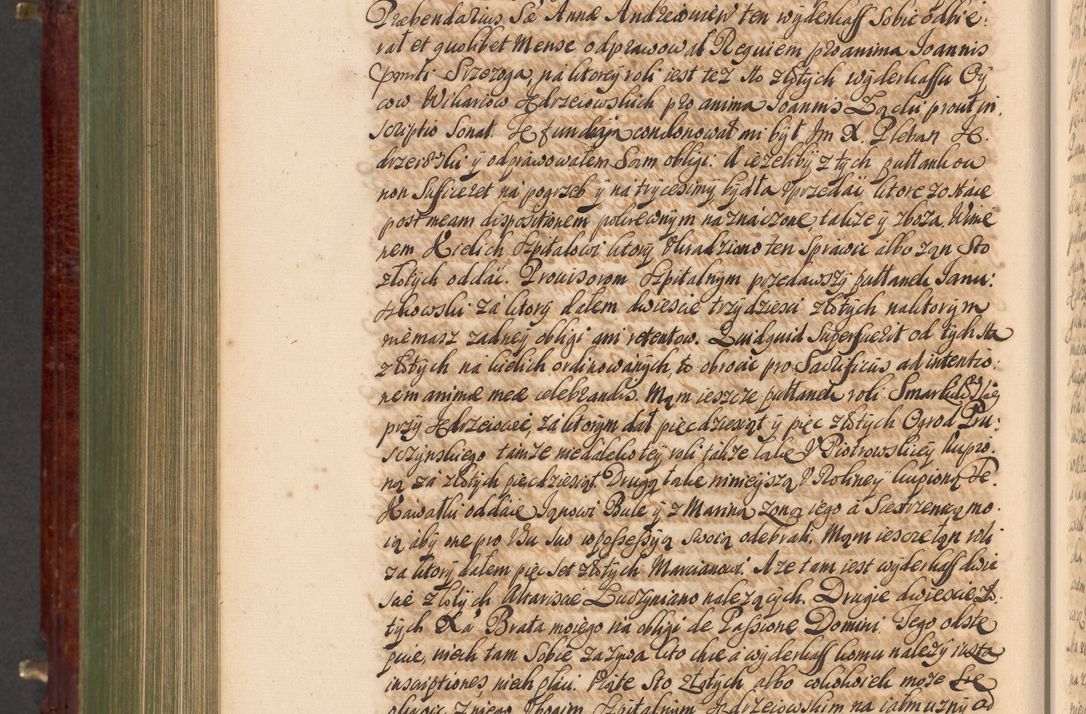 Præbendarius Sæ Annæ Andrzeiowiew ten wyderkaff Sobie odbie:
rał et quolibet Mense odprawował Requiem pro anima Joannis
Strzeroga, na litorey roli iest też sto złotych wyderkaffu Oy
cow Wikariow Hdrzeiowskich pro anima Joannis prout in:
scriptio sonat. Te fundują condonował mi był Jm X. Pleban He.
drzeiowski y odprawowałem Sam obligi. A ieżeliby z tych pułłankow
non Sufficeret na pogrzeb y na trycesimy, bydła sprzedać litore zostane
post meam dispositionem pokrewnym naznaczone, także y zboża. Wine
nem Kielich Szpitalowi litory Vkradziono ten sprawić albo zan Sto
złotych oddać. Prouisorom Szpitalnym przedawszy pułłanek Janu:
szkowski za litory dałem dwieście trzydzieści złotych na litorym
niemasz żadney obligi ani retentow. Quidquid Superfuerit od tych sta
złotych na kielich ordinowanych to obrocić pro Sacrificiis ad intentio:
nem animæ meæ celebrandis. Mam ieszcze pułłanek roli
przy Hdrzeiowie, za litorym dał pięcdziesiąt y pięc złotych Ogrod Pru:
szczynskiego tamże niedaleko tey roli także łake V Piotrowskiey kupio:
ną za złotych pięcdziesiąt Drugą łake mnieyszą V Rolney kupioną Te.
Kawałki oddaie Janowi Bule y z Marina żoną iego a Siestrzenicą mo:
ią aby one pro Vsu suo w possessyą Swoią odebrali. Mam ieszcze łan roli
za litory dałem pięc set złotych Marcianowi. A że tam iest wyderkaff dwie
scie złotych Altarisæ Luszyniano należących. Drugie dwiescie zł.
tych Xa Brata moiego na obligi de Passione Domini. Tego obstę
puie, niech tam Sobie zażywa kto chce a wyderkaff komu należy iuxta
inscriptiones niech płaci. Piąte sto złotych albo cokolwiek może Sie
Vbogim Szpitalnym Hdrzeiowskim na iałmużny od